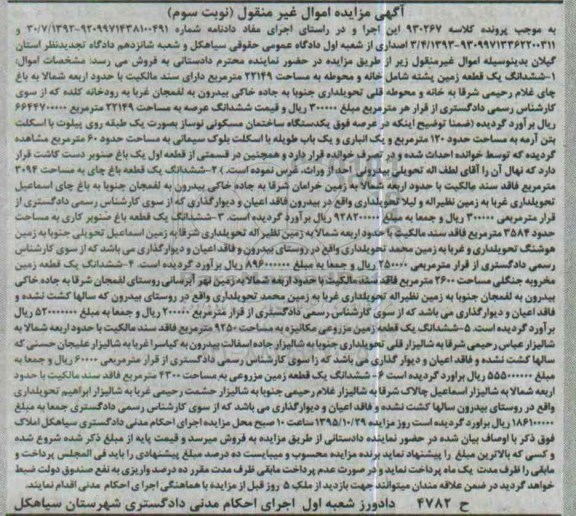 آگهی مزایده اموال غیر منقول (نوبت سوم)
به موجب پرونده کلاسه ۹۳۰۲۶۷ این اجرا و در راستای اجرای مفاد دادنامه شماره ۹۲۰۹۹۷۱۴۳۸۱۰۰۴۹۱-۳۰/۷/۱۳۹۲ و
۹۳۰۹۹۷۱۳۶۲۲۰۰۳۱۱-۳/۴/۱۳۹۳ اصداری از شعبه اول دادگاه عمومی حقوقی سیاهکل و شعبه شانزدهم دادگاه تجدیدنظر استان
گیلان بدینوسیله اموال غیرمنقول زیر از طریق مزایده در حضور نماینده محترم دادستانی به فروش می رسد: مشخصات اموال:
۱-ششدانگ یک قطعه زمین پشته شامل خانه و محوطه به مساحت ۲۲۱۴۹ مترمربع دارای سند مالکیت با حدود اربعه شمالا به باغ
چای غلام رحیمی شرقا به خانه و محوطه قلی تحویلداری جنوبا به جاده خاکی بیدرون به لفمجان غربا به رودخانه کلده که از سوی
کارشناس رسمی دادگستری از قرار هر مترمربع مبلغ ۳۰۰۰۰۰ ریال و قیمت ششدانگ عرصه به مساحت ۲۲۱۴۹ مترمربع ۶۶۴۴۷۰۰۰۰۰
ریال برآورد گردیده (ضمنا توضیح اینکه در عرصه فوق یکدستگاه ساختمان مسکونی نوساز بصورت یک طبقه روی پیلوت با اسکلت
بتن آرمه به مساحت حدود ۱۲۰ مترمربع و یک انباری و یک باب طویله با اسکلت بلوک سیمانی به مساحت حدود ۶۰ مترمربع مشاهده
گردیده که توسط خوانده احداث شده و در تصرف خوانده قرار دارد و همچنین در قسمتی از قطعه اول یک باغ صنوبر دست کاشت قرار
دارد که نهال آن را آقای لطف اله تحویلی بیدرونی احد از وراث، غرس نموده است.) ۲-ششدانگ یک قطعه باغ چای به مساحت ۳۰۹۴
مترمربع فاقد سند مالکیت با حدود اربعه شمالا به زمین خرامان شرقا به جاده خاکی بیدرون به لفمجان جنوبا به باغ چای اسماعیل
تحویلداری غربا به زمین نظیراله و لیلا تحویلداری واقع در بیدرون فاقد اعیان و دیوارگذاری که از سوی کارشناس رسمی دادگستری از
قرار مترمربعی ۳۰۰۰۰۰ ریال و جمعا به مبلغ ۹۲۸۲۰۰۰۰۰ ریال برآورد گردیده است. ۳-ششدانگ یک قطعه باغ صنوبر کاری به مساحت
حدود ۳۵۸۴ مترمربع فاقد سند مالکیت با حدود اربعه شمالا به زمین نظیر اله تحویلداری شرقا به زمین اسماعیل تحویلی جنوبا به زمین
هوشنگ تحویلداری و غربا به زمین محمد تحویلداری واقع در روستای بیدرون و فاقد اعیان و دیوارگذاری می باشد که از سوی کارشناس
رسمی دادگستری از قرار مترمربعی ۲۵۰۰۰۰ ریال و جمعا به مبلغ ۸۹۶۰۰۰۰۰۰ ریال برآورد گردیده است. ۴-ششدانگ یک قطعه زمین
مخروبه جنگلی مساحت ۲۶۰۰ مترمربع فاقد سند مالکیت با حدود اربعه شمالا به زمین نهر آبرسانی روستای لفمجان شرقا به جاده خاکی
بیدرون به لفمجان جنوبا به زمین نظیراله تحویلداری غربا به زمین محمد تحویلداری واقع در روستای بیدرون که سالها کشت نشده و
فاقد اعیان و دیوارگذاری می باشد که از سوی کارشناس رسمی دادگستری از قرار مترمربع ۲۰۰۰۰۰ ریال و جمعا به مبلغ ۵۲۰۰۰۰۰۰۰ ریال
برآورد گردیده است. ۵-ششدانگ یک قطعه زمین مزروعی مکانیزه به مساحت ۹۲۵۰ مترمربع فاقد سند مالکیت با حدود اربعه شمالا به
شالیزار عباس رحیمی شرقا به شالیزار قلی تحویلداری جنوبا به شالیزار جاده اسفالت بیدرون به کیاسرا غربا به شالیزار علیجان حسنی که
سالها کشت نشده و فاقد اعیان و دیوار گذاری می باشد که از سوی کارشناس رسمی دادگستری از قرار مترمربعی ۶۰۰۰۰ ریال و جمعا به
مبلغ ۵۵۵۰۰۰۰۰۰ ریال برآورد گردیده است ۶-ششدانگ یک قطعه زمین مزروعی به مساحت ۴۳۰۰ مترمربع فاقد سند مالکیت با حدود
اربعه شمالا به شالیزار اسماعیل چالاک شرقا به شالیزار غلام رحیمی جنوبا به شالیزار حشمت رحیمی غربا به شالیزار ابراهیم تحویلداری
واقع در روستای بیدرون سالها کشت نشده و فاقد اعیان و دیوارگذاری می باشد که از سوی کارشناس رسمی دادگستری جمعا به مبلغ
۱۸۶۱۰۰۰۰۰ ریال برآورد گردیده است روز مزایده ۱۳۹۵/۱۰/۲۹ ساعت ۱۰ صبح محل مزایده اجرای احکام مدنی دادگستری سیاهکل املاک
فوق ذکر با اوصاف بیان شده در حضور نماینده دادستانی از طریق مزایده به فروش میرسد و قیمت پایه از مبلغ ذکر شده شروع شده
و کسی که بالاترین مبلغ را پیشنهاد نماید برنده مزایده محسوب و میبایست ده درصد مبلغ پیشنهادی را باید فی المجلس پرداخت و
مابقی را ظرف مدت یک ماه پرداخت نماید و در صورت عدم پرداخت مابقی ظرف مدت مقرر ده درصد واریزی به نفع صندوق دولت ضبط
خواهد گردید در ضمن علاقه مندان میتوانند جهت بازدید از ملک ۵ روز قبل از مزایده با هماهنگی اجرای احکام مدنی اقدام نمایند.
ح ۴۷۸۲ دادورز شعبه اول اجرای احکام مدنی دادگستری شهرستان سیاهکل